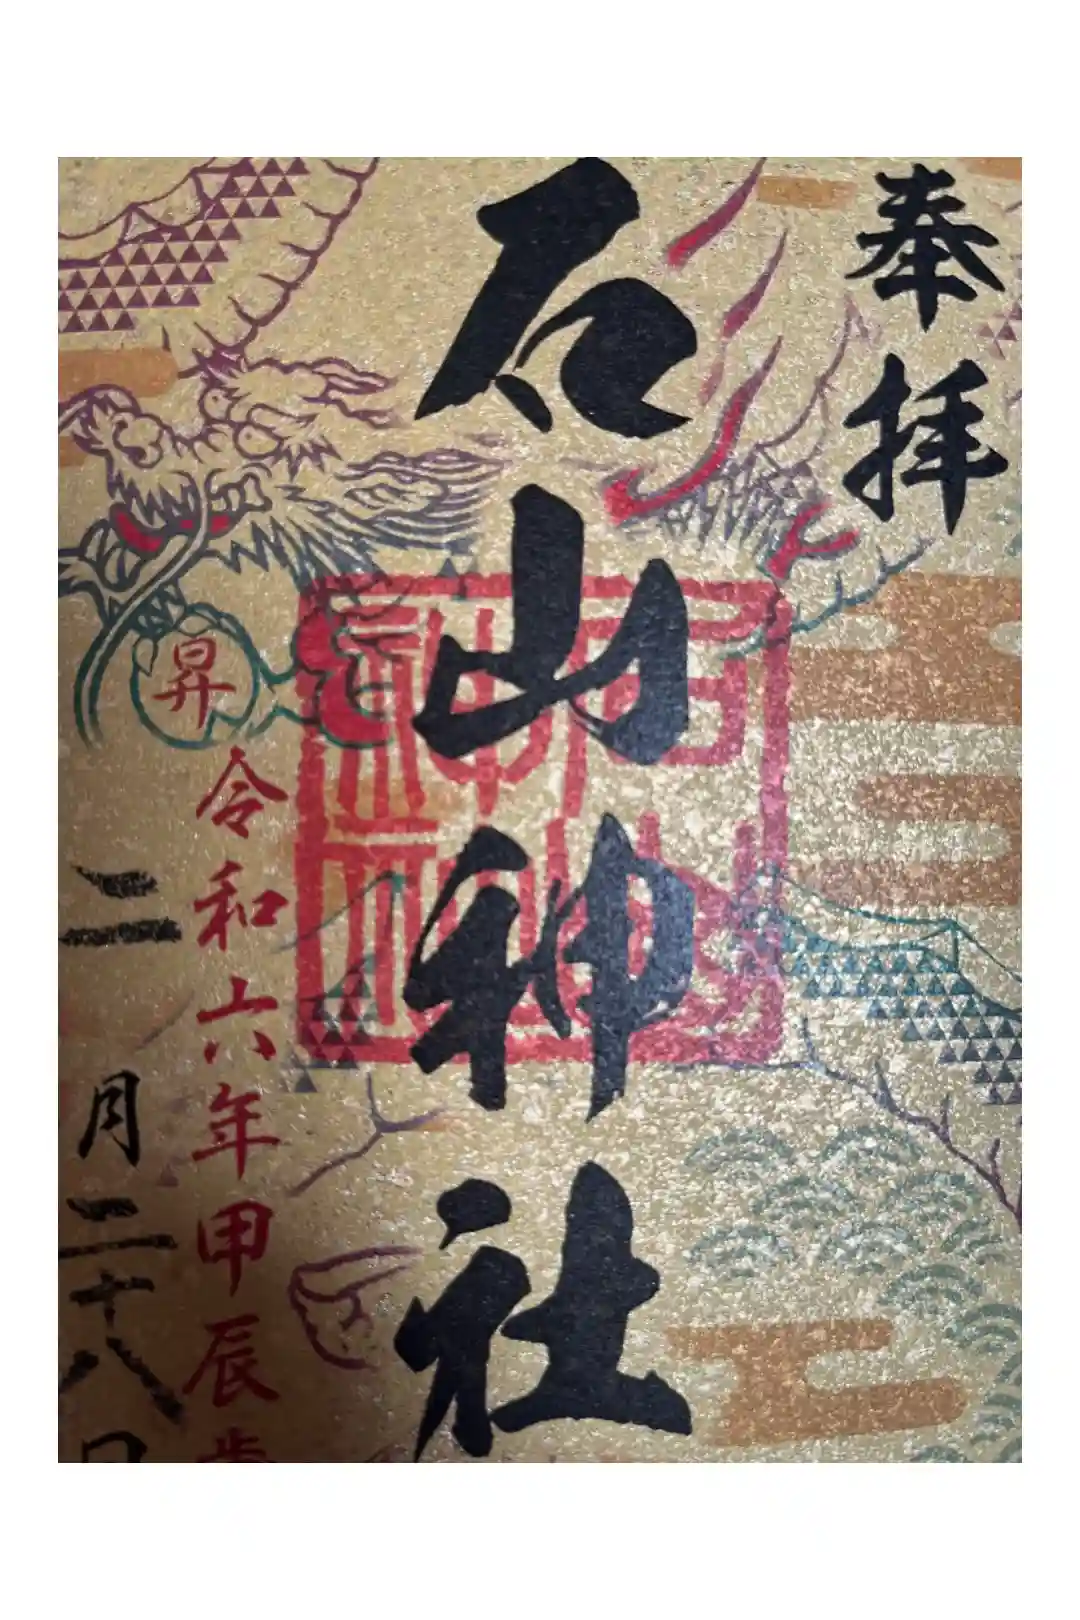 奉拝
石山神社
昇
令和六年甲辰歳
三月二十八日